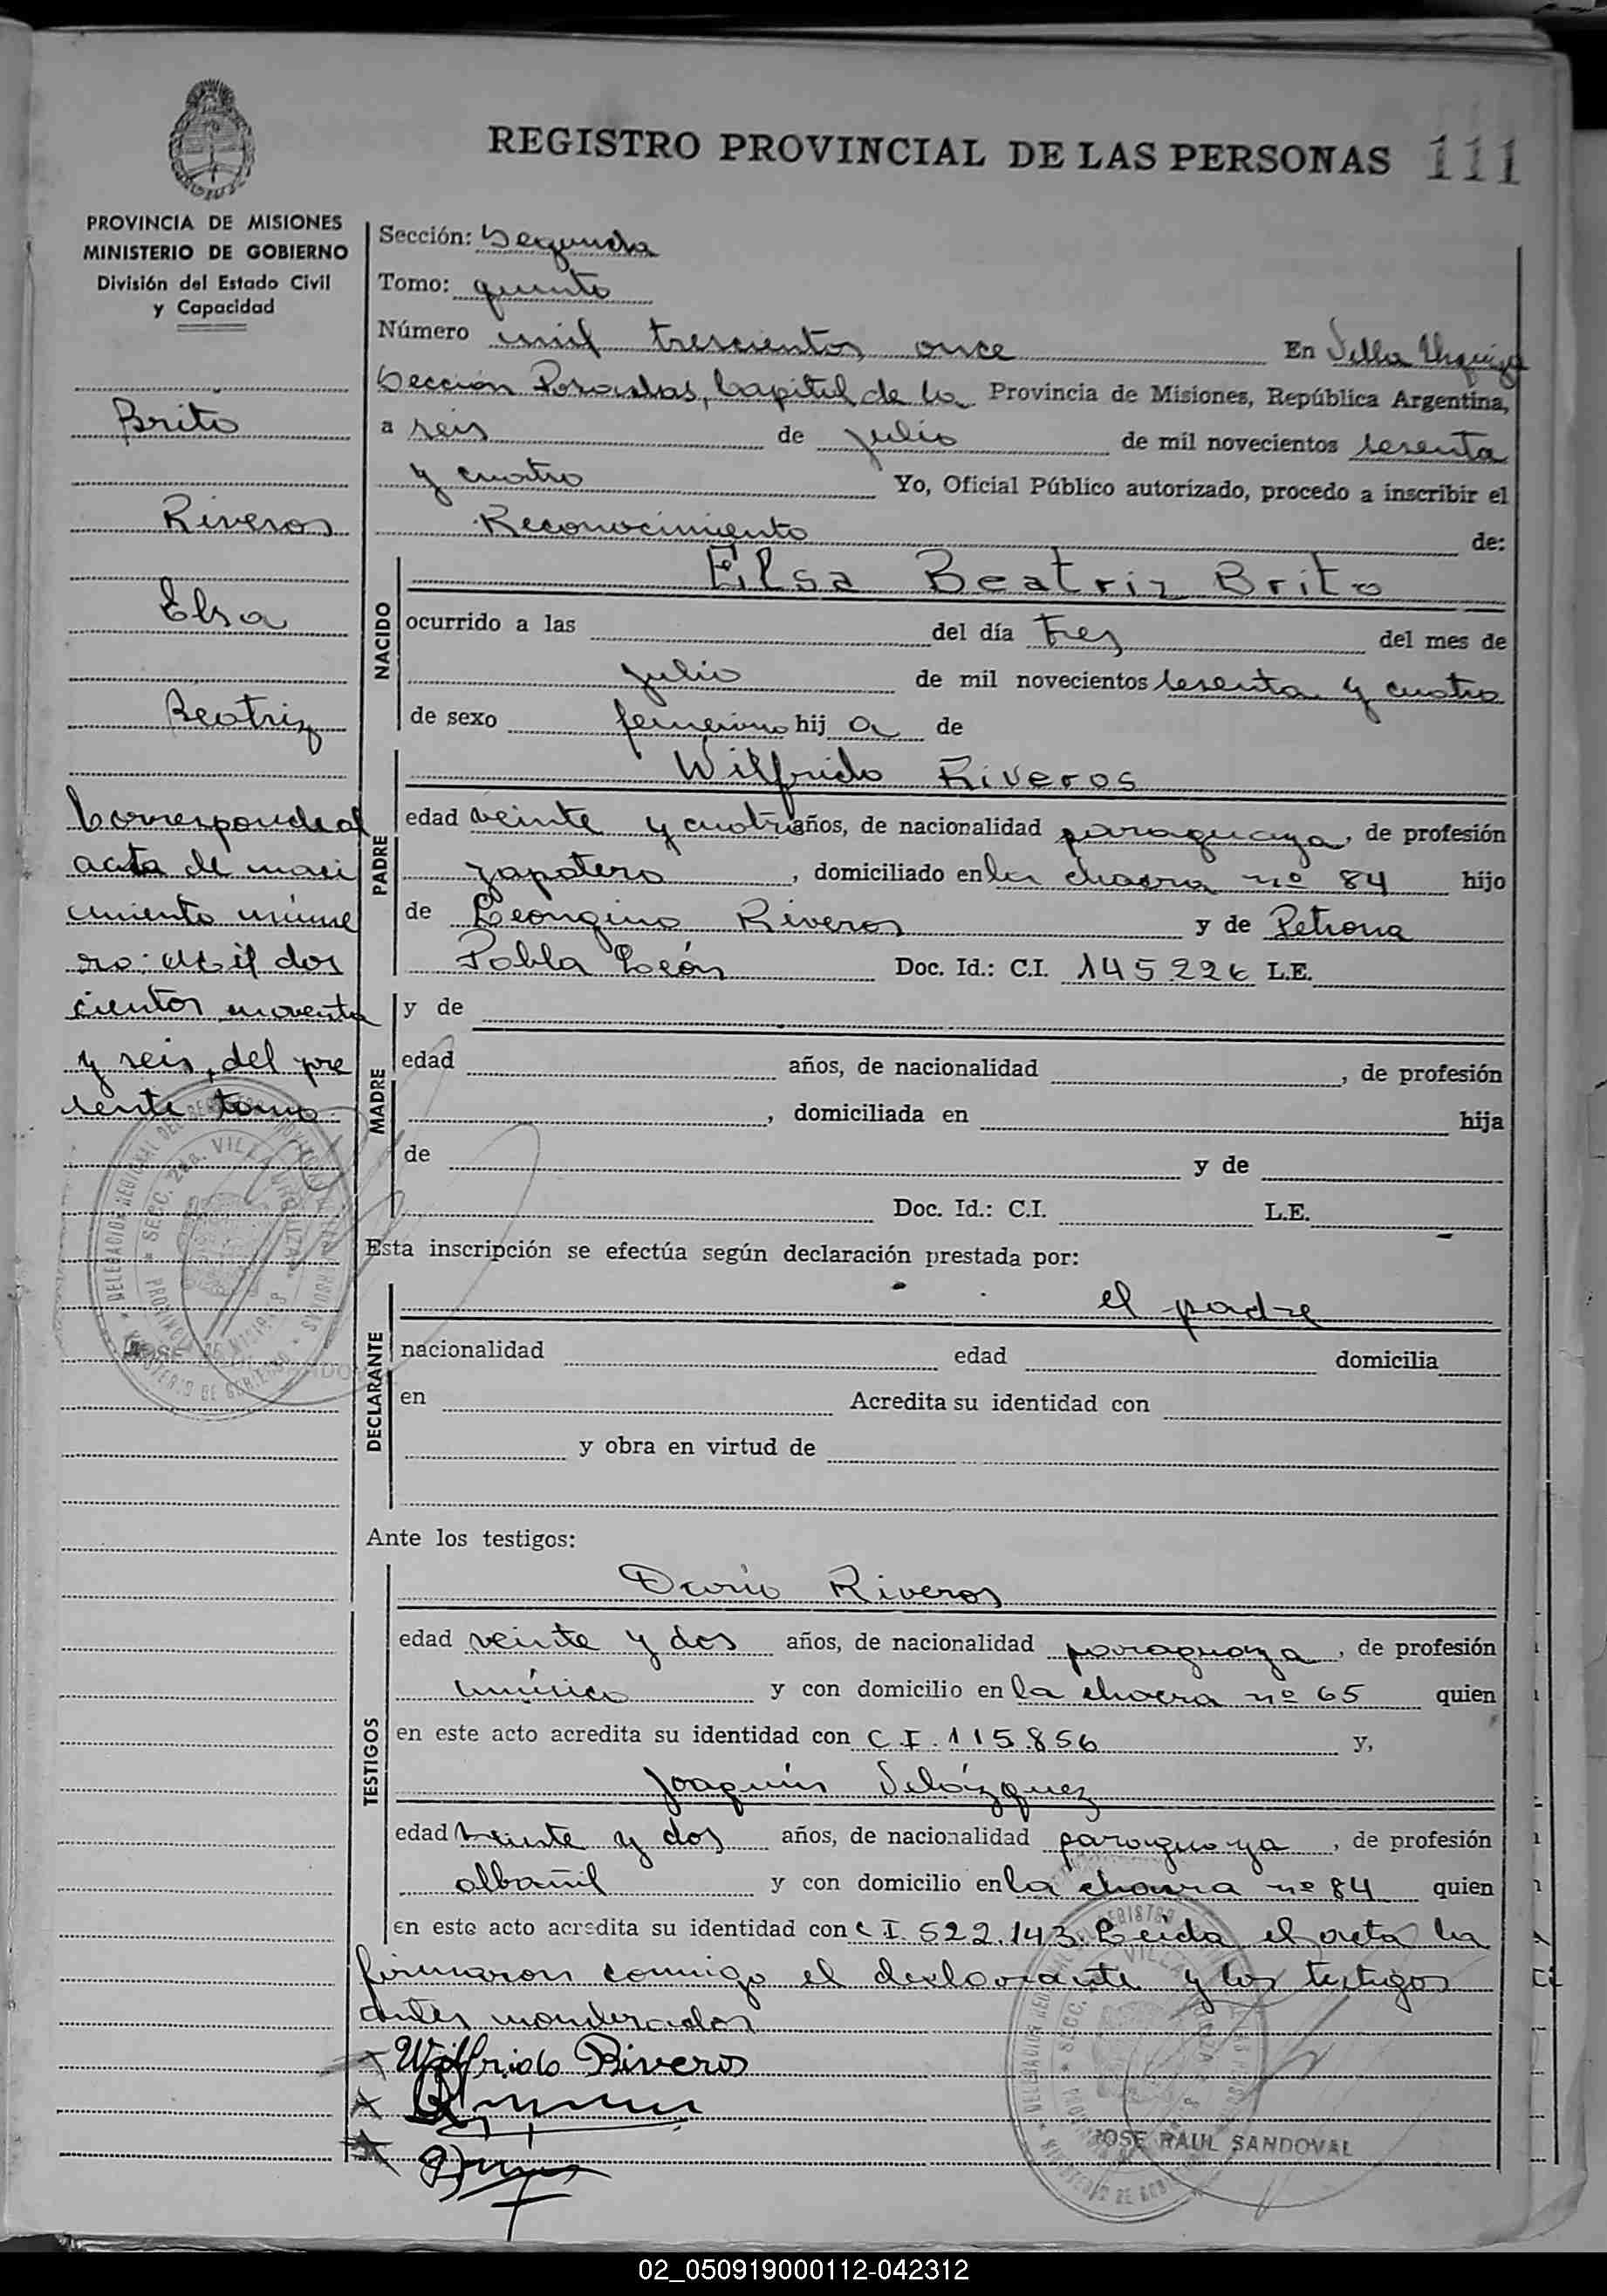 REGISTRO PROVINCIAL DE LAS PERSONAS 111
PROVINCIA DE MISIONES
MINISTERIO DE GOBIERNO
División del Estado Civil
y Capacidad
Brito
Riveros
Elsa
Beatriz
Corresponde al
acta de naci
miento núme
ro: mil dos
cientos noventa
y seis, del pre
sente tomo
Sección: Segunda
Tomo: quinto
Número mil trescientos once En Villa Urquiza
Sección Posadas, Capital de la Provincia de Misiones, República Argentina,
a seis de julio de mil novecientos sesenta
y cuatro Yo, Oficial Público autorizado, procedo a inscribir el
Reconocimiento de:
NACIDO
Elsa Beatriz Brito
ocurrido a las del día tres del mes de
julio de mil novecientos sesenta y cuatro
de sexo femenino hij a de
PADRE
Wilfrido Riveros
edad veinte y cuatro años, de nacionalidad paraguaya, de profesión
zapatero, domiciliado en la chacra nº 84 hijo
de Leongino Riveros y de Petrona
Pabla León Doc. Id.: C.I. 145.226 L.E.
MADRE
y de
edad años, de nacionalidad , de profesión
, domiciliada en hija
de y de
Doc. Id.: C.I. L.E.
Esta inscripción se efectúa según declaración prestada por:
DECLARANTE
el padre
nacionalidad edad domicilia
en Acredita su identidad con
y obra en virtud de
Ante los testigos:
TESTIGOS
Darío Riveros
edad veinte y dos años, de nacionalidad paraguaya, de profesión
músico y con domicilio en la chacra nº 65 quien
en este acto acredita su identidad con C.I. 115.856 y,
Joaquín Velázquez
edad veinte y dos años, de nacionalidad paraguaya, de profesión
albañil y con domicilio en la chacra nº 84 quien
en este acto acredita su identidad con C I. 522.143. Leída el acta la
firmaron conmigo el declarante y los testigos
antes nombrados
Wilfrido Riveros
JOSE RAUL SANDOVAL
02_050919000112-042312